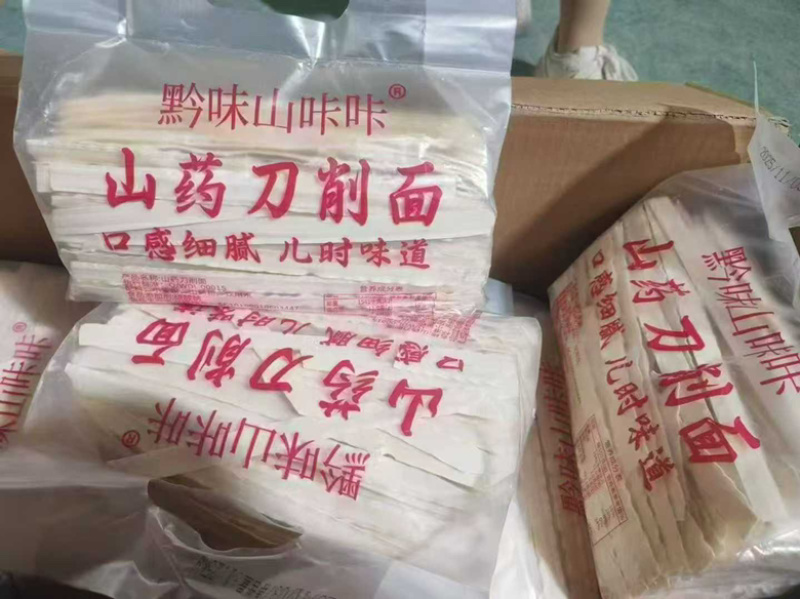 黔味山咔咔®
山药刀削面
口感细腻 儿时味道
黔味山咔咔®
山药刀削面
口感细腻 儿时味道
黔味山咔咔
山药刀削面
口感细腻 儿时味道
黔味山咔咔
山咔咔®